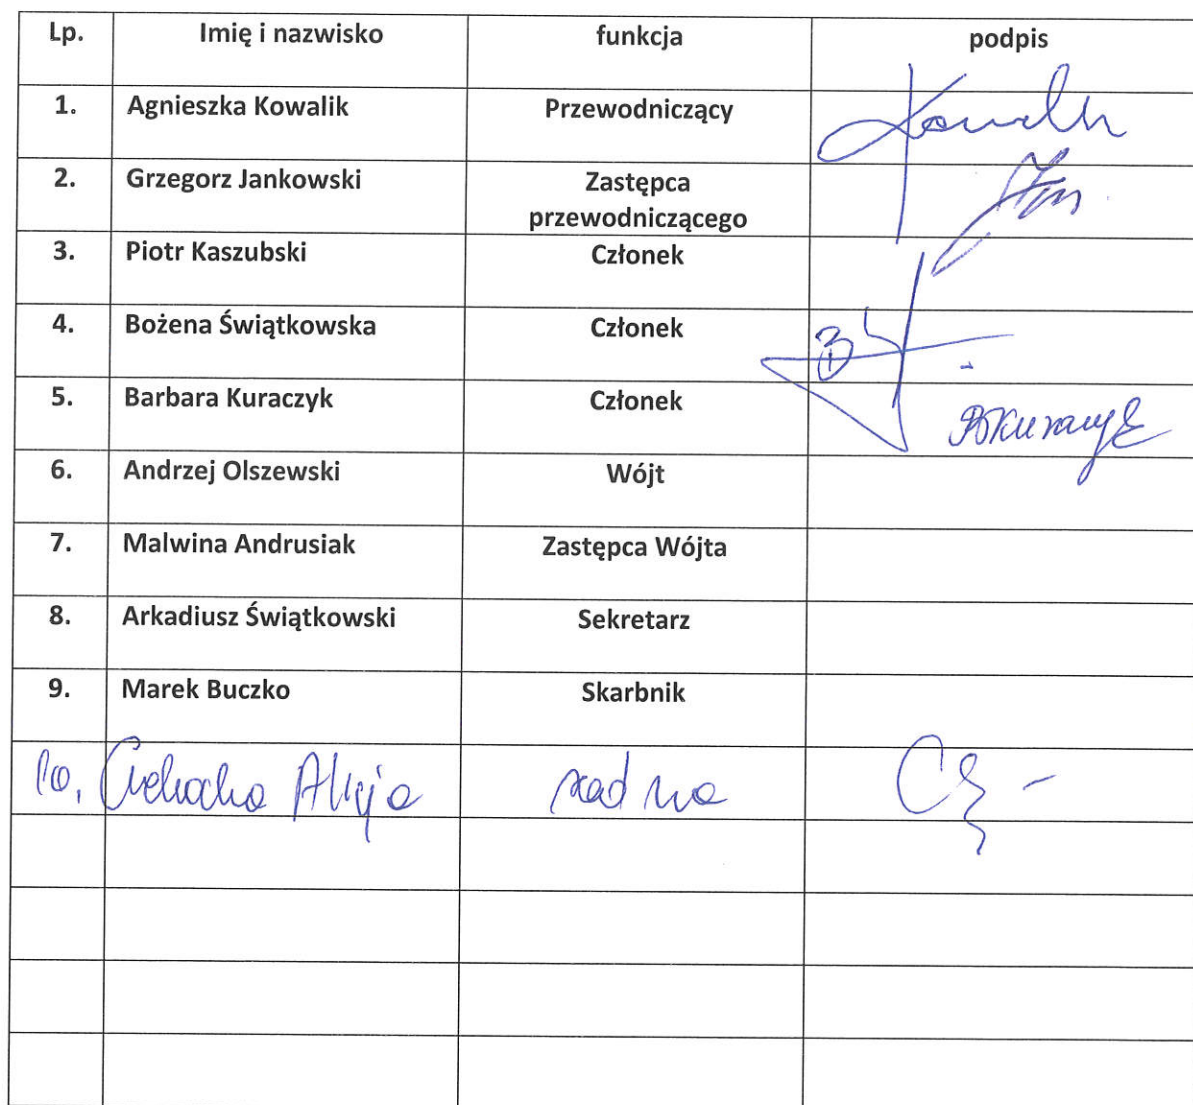 Lp. Imię i nazwisko funkcja podpis
1. Agnieszka Kowalik Przewodniczący Kowalik
2. Grzegorz Jankowski Zastępca
przewodniczącego
3. Piotr Kaszubski Członek
4. Bożena Świątkowska Członek
5. Barbara Kuraczyk Członek BKuraczyk
6. Andrzej Olszewski Wójt
7. Malwina Andrusiak Zastępca Wójta
8. Arkadiusz Świątkowski Sekretarz
9. Marek Buczko Skarbnik
10. Alicja radna